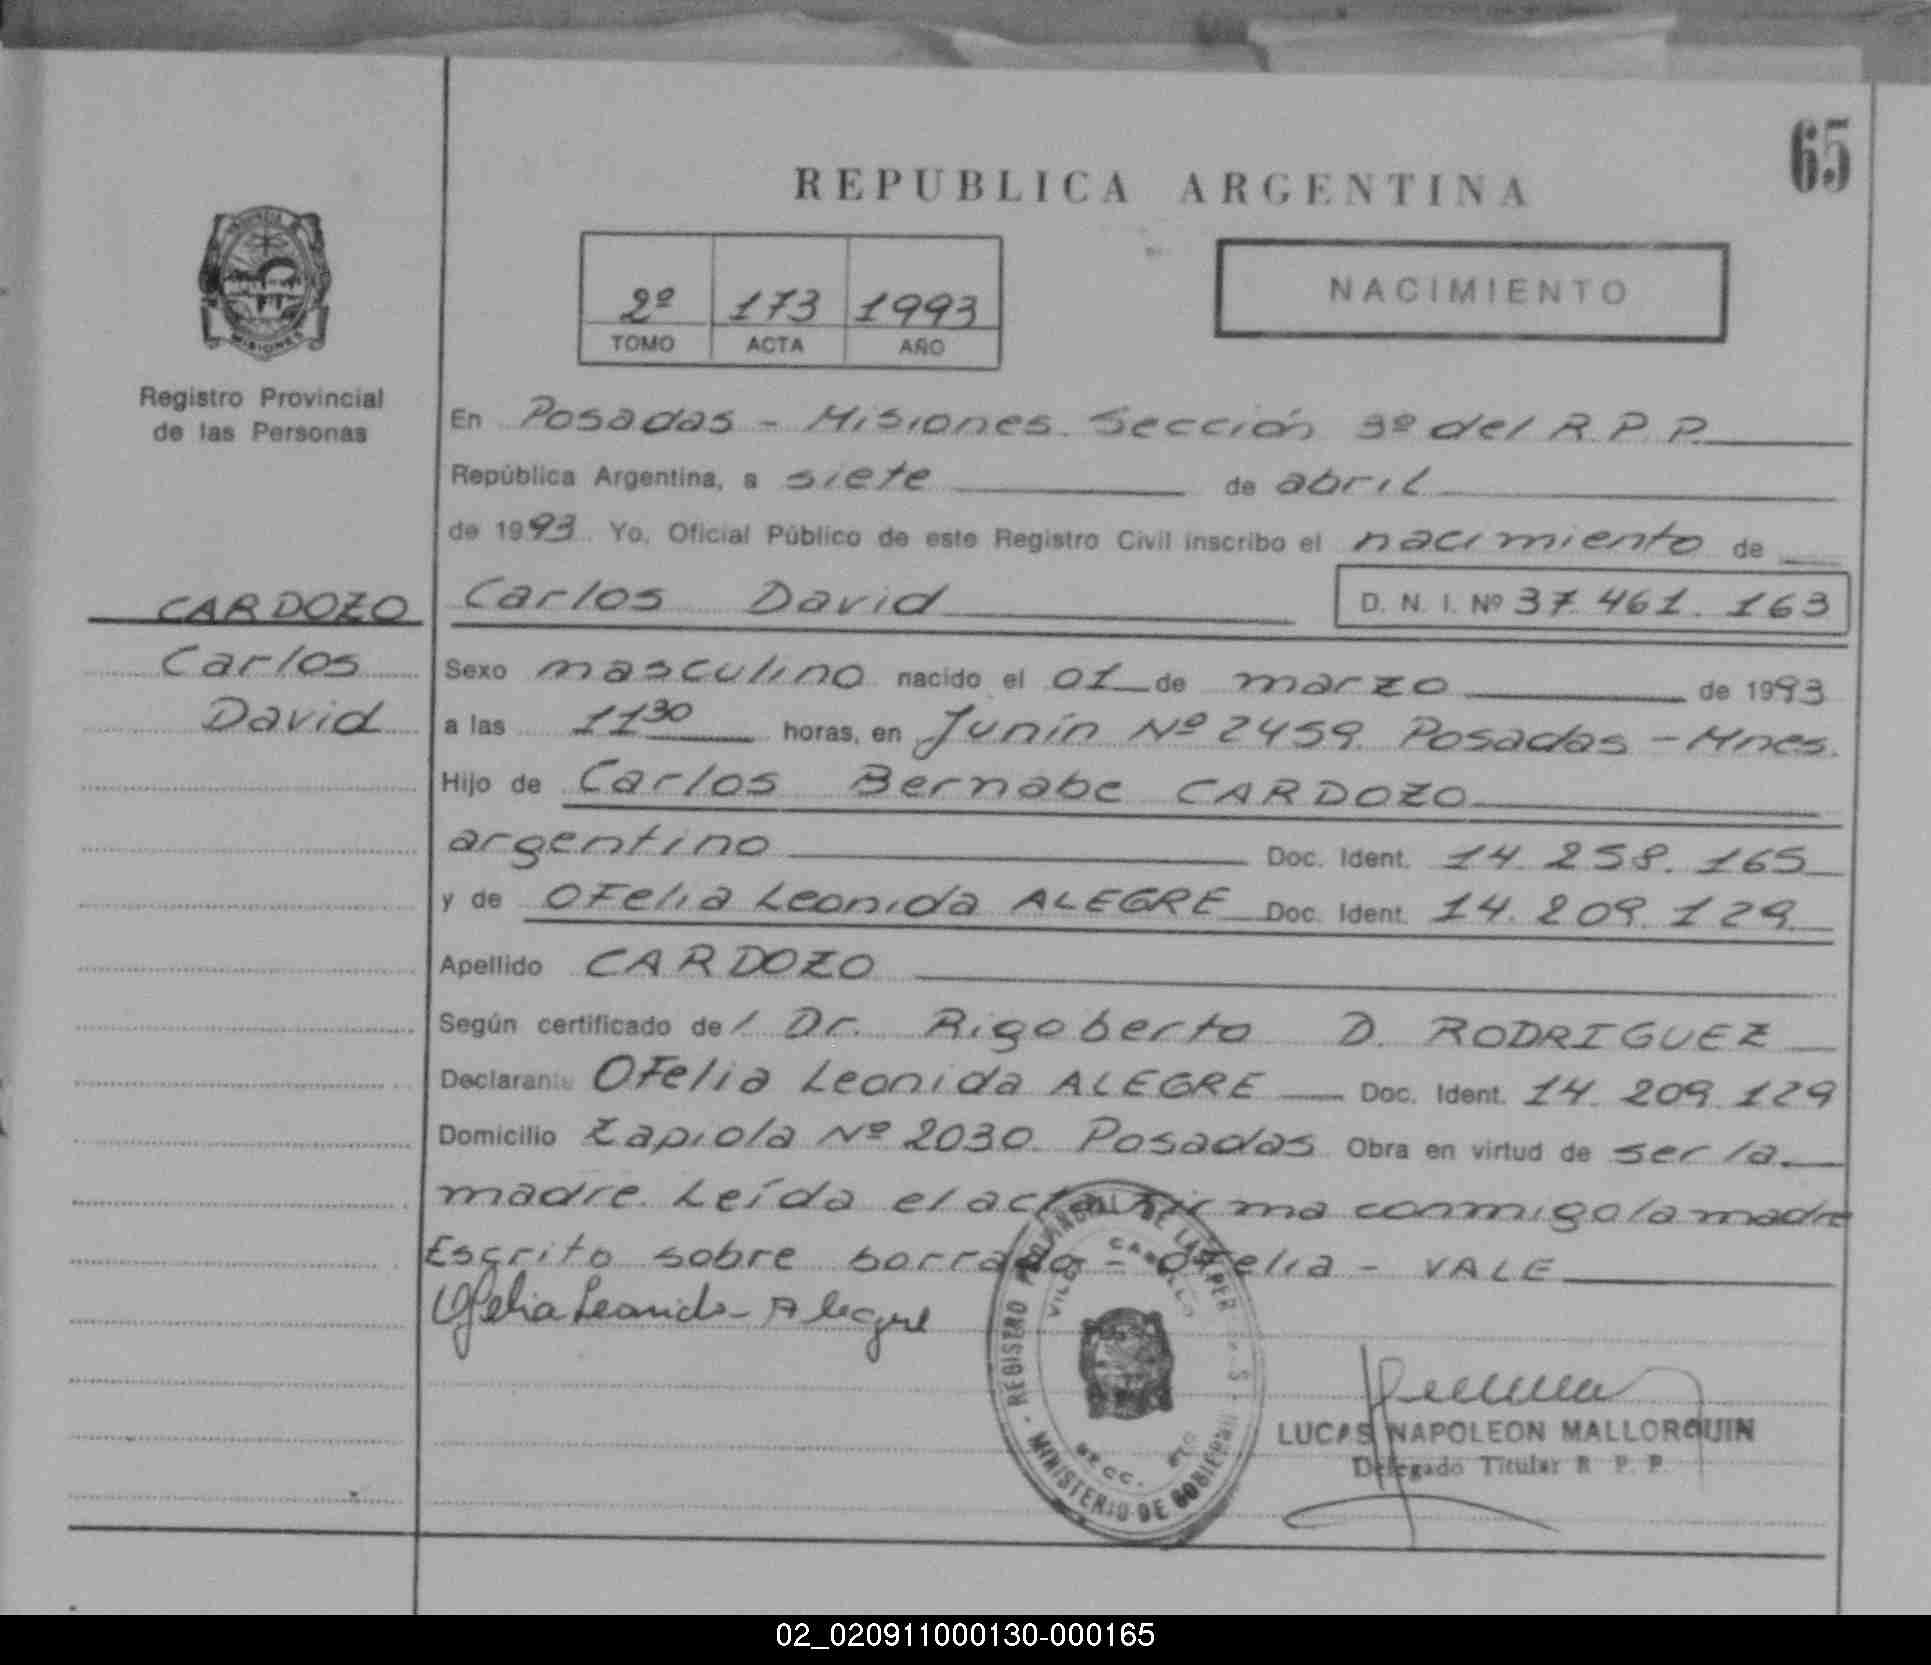 65
REPUBLICA ARGENTINA
2º 173 1993
TOMO ACTA AÑO
NACIMIENTO
MISIONES
Registro Provincial
de las Personas
CARDOZO
Carlos
David
En Posadas - Misiones. Sección 3º del R.P.P.
República Argentina, a siete de abril
de 1993. Yo, Oficial Público de este Registro Civil inscribo el nacimiento de
Carlos David D. N. I. Nº 37.461.163
Sexo masculino nacido el 01 de marzo de 1993
a las 11 30 horas, en Junín Nº 2459. Posadas - Mnes.
Hijo de Carlos Bernabe CARDOZO
argentino Doc. Ident. 14.258.165
y de OFelia Leonida ALEGRE Doc. Ident. 14.209.129.
Apellido CARDOZO
Según certificado del Dr. Rigoberto D. RODRIGUEZ
Declarante OFelia Leonida ALEGRE Doc. Ident. 14.209.129
Domicilio Zapiola Nº 2030. Posadas Obra en virtud de ser la
madre. Leída el acta firma conmigo la madre
Escrito sobre borrado - OFelia - VALE
Ofelia Leonida Alegre
REGISTRO PROVINCIAL DE LAS PERSONAS
MINISTERIO DE GOBIERNO
SECC.
LUCAS NAPOLEON MALLORQUIN
Delegado Titular R. P. P.
02_020911000130-000165